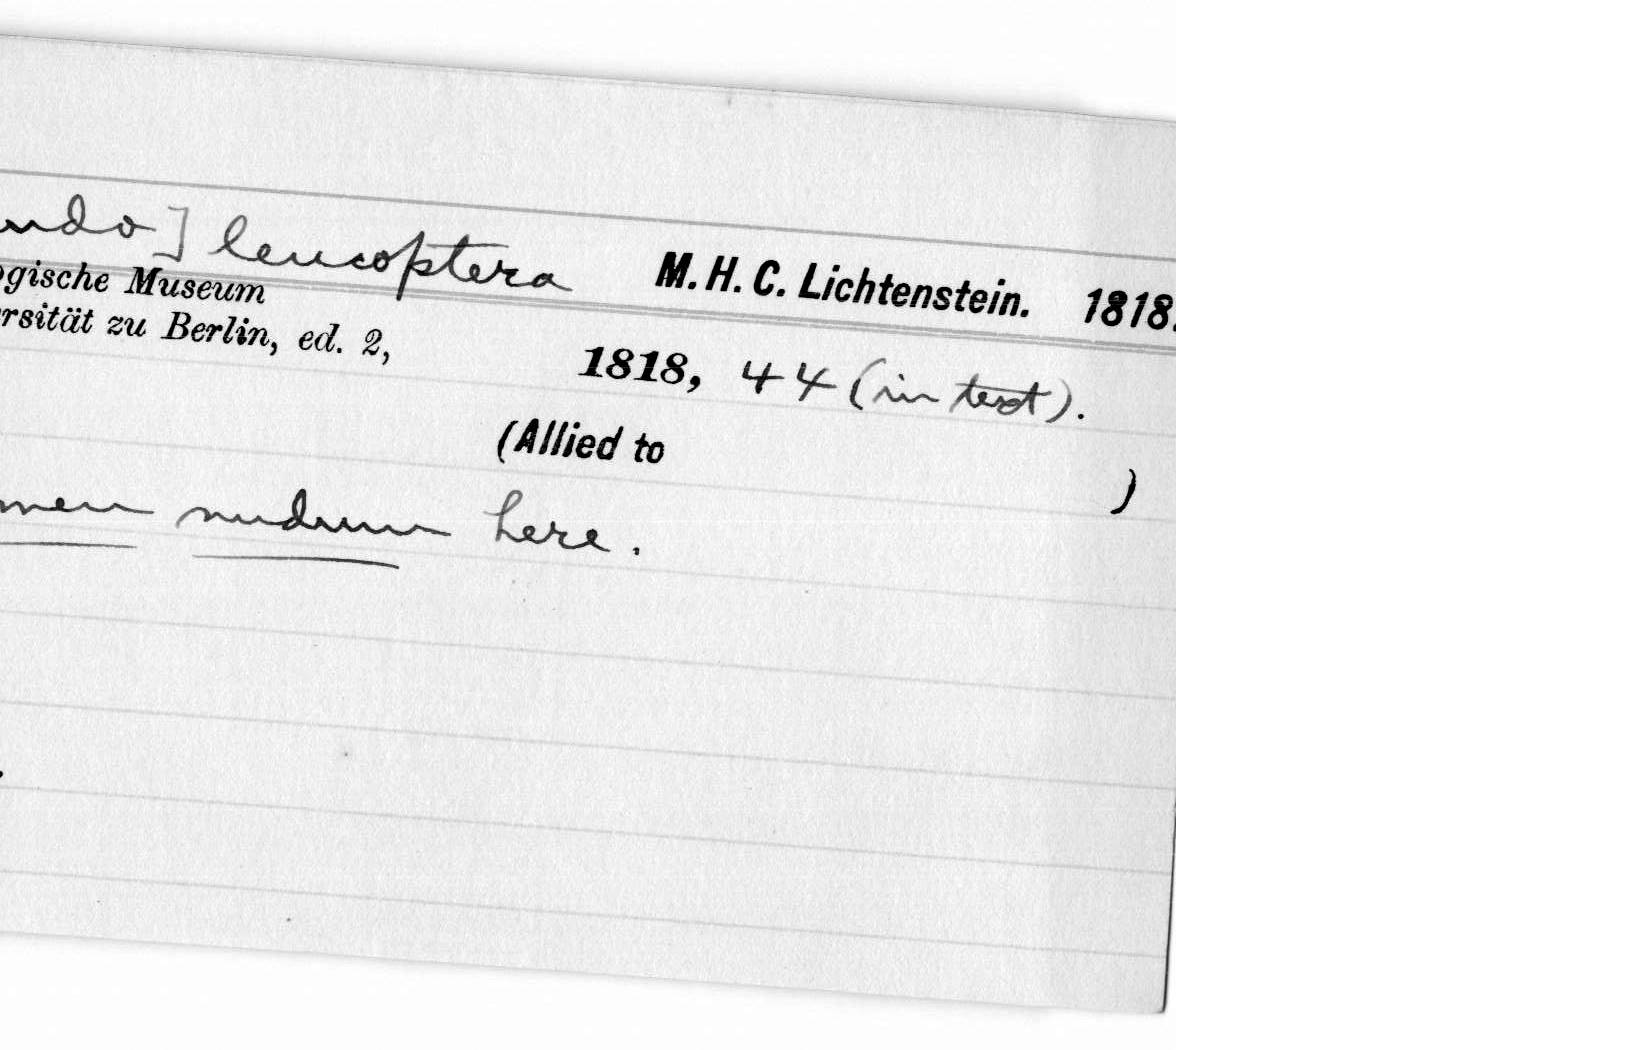 ndo] leucoptera M. H. C. Lichtenstein. 1818.
ogische Museum
rsität zu Berlin, ed. 2, 1818, 44 (in text).
(Allied to )
men nudum here.